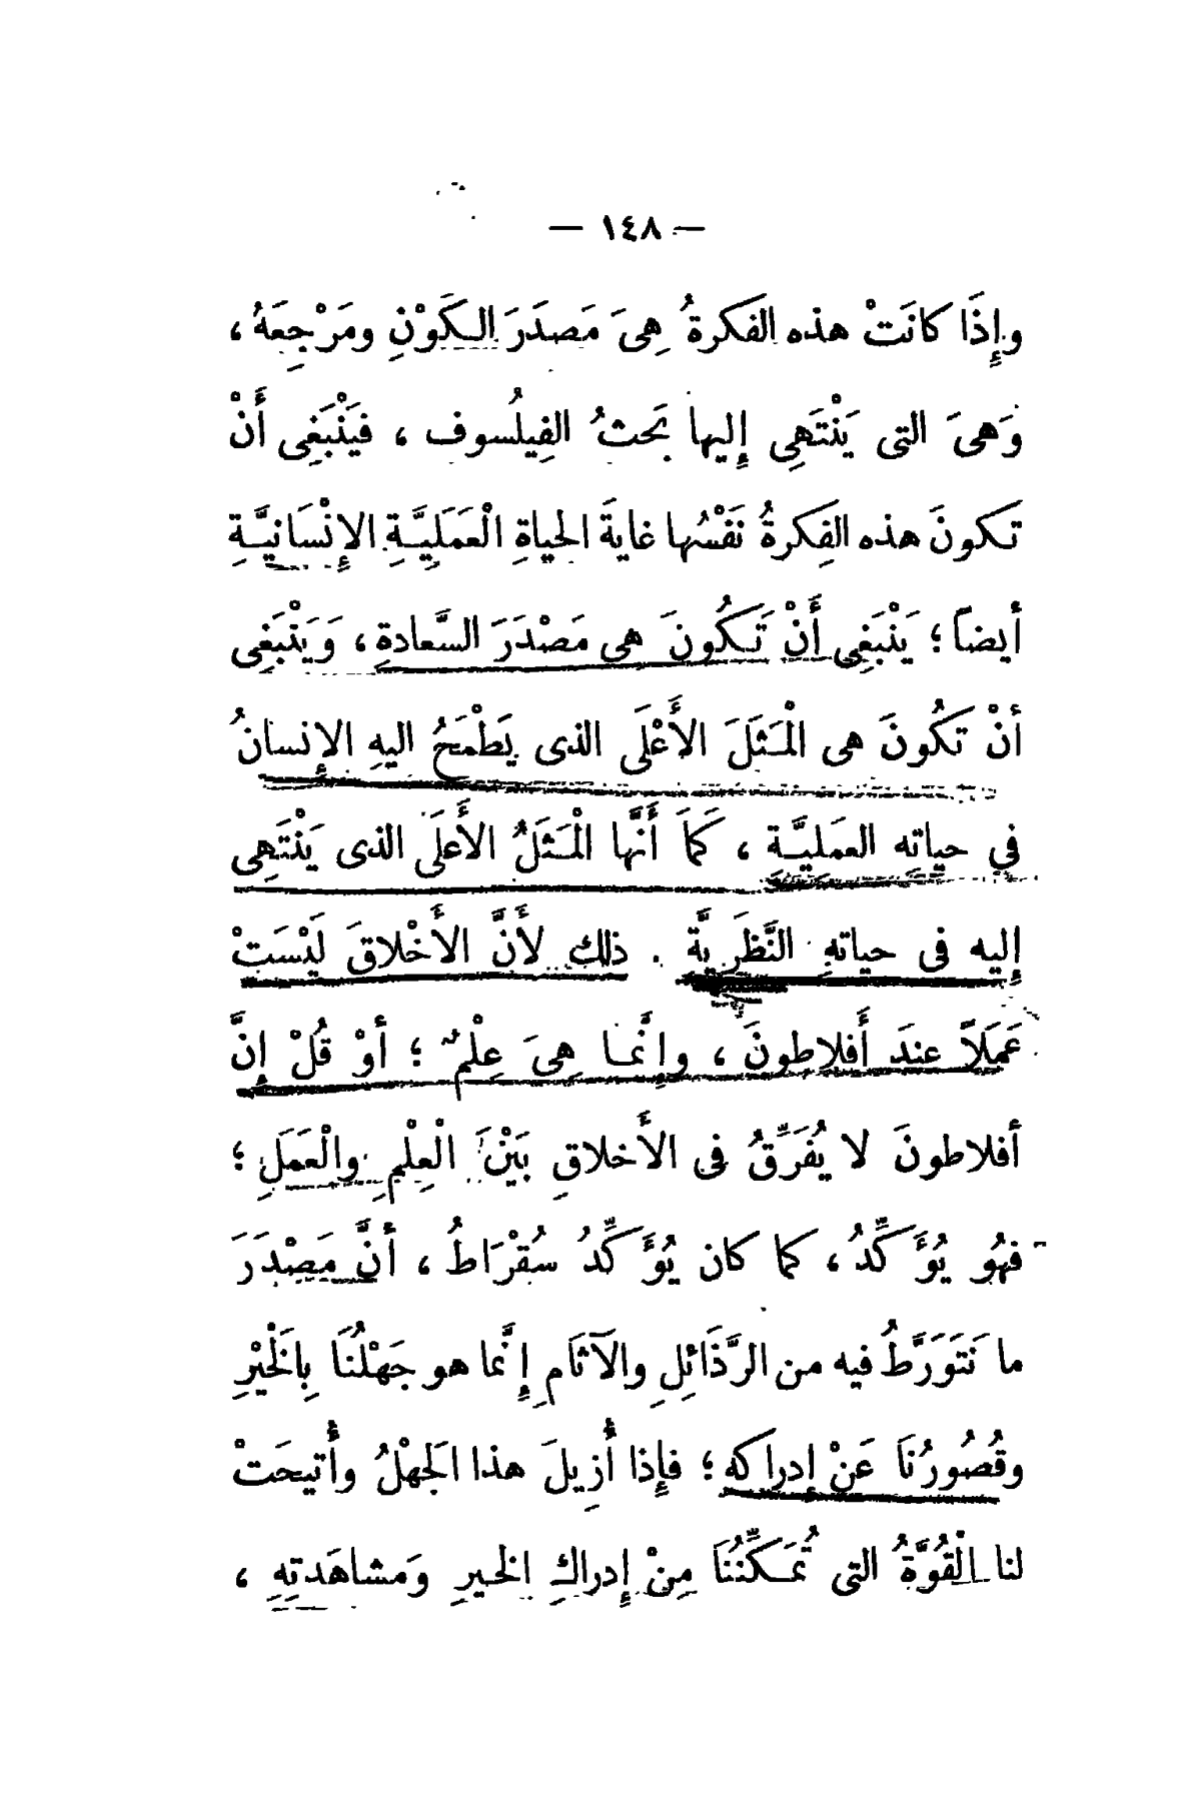 — ١٤٨ —
وإِذَا كانَتْ هذه الفكرةُ هِىَ مَصدَرَ الكَوْنِ ومَرْجِعَهُ ،
وَهىَ التى يَنْتَهِى إليها بَحثُ الفِيلُسوف ، فيَنْبَغِى أَنْ
تكونَ هذه الفِكرةُ نَفْسُها غايةَ الحياةِ الْعَمَلِيَّةِ الإنْسَانِيَّةِ
أيضاً ؛ يَنْبَغِى أَنْ تَكُونَ هى مَصْدَرَ السَّعادةِ ، وَيَنْبَغِى
أنْ تَكُونَ هى الْمَثَلَ الأَعْلَى الذى يَطْمَحُ اليهِ الإنسانُ
فى حياتِه العمَلِيَّةِ ، كَمَا أَنَّها الْمَثَلُ الأَعلَى الذى يَنْتَهِى
إليه فى حياتهِ النَّظَرِيَّةِ . ذلك لأَنَّ الأَخْلاقَ لَيْسَتْ
عَمَلاً عندَ أَفلاطونَ ، وإنَّما هِىَ عِلْمٌ ؛ أوْ قُلْ إنَّ
أفلاطونَ لا يُفَرِّقُ فى الأَخلاقِ بَيْنَ الْعِلْمِ والْعَمَلِ ؛
فهُو يُؤَكِّدُ ، كما كان يُؤَكِّدُ سُقْرَاطُ ، أنَّ مَصْدَرَ
ما نَتَوَرَّطُ فيه من الرَّذَائِلِ والآثَامِ إنَّما هو جَهْلُنَا بِالْخَيْرِ
وقُصُورُنَا عَنْ إدراكه ؛ فإذا أُزِيلَ هذا الجَهْلُ وأُتيحَتْ
لنا الْقُوَّةُ التى تُمَكِّنُنَا مِنْ إدراكِ الخيرِ وَمشاهَدتِهِ ،